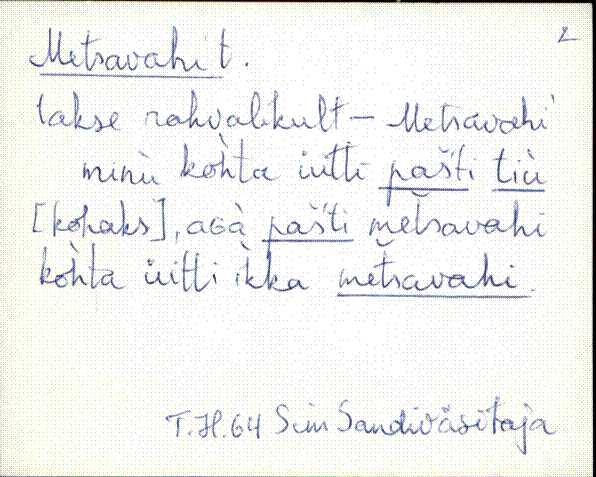 2
Metsavahi t.
takse rahvalikult – Metsavahi
minù koh̀ta üitti pašti tiù
[kohaks], agà pašti metsavahi
koh̀ta üitti ikka metsavahi.
T.H. 64 Siim Sandiväsitaja